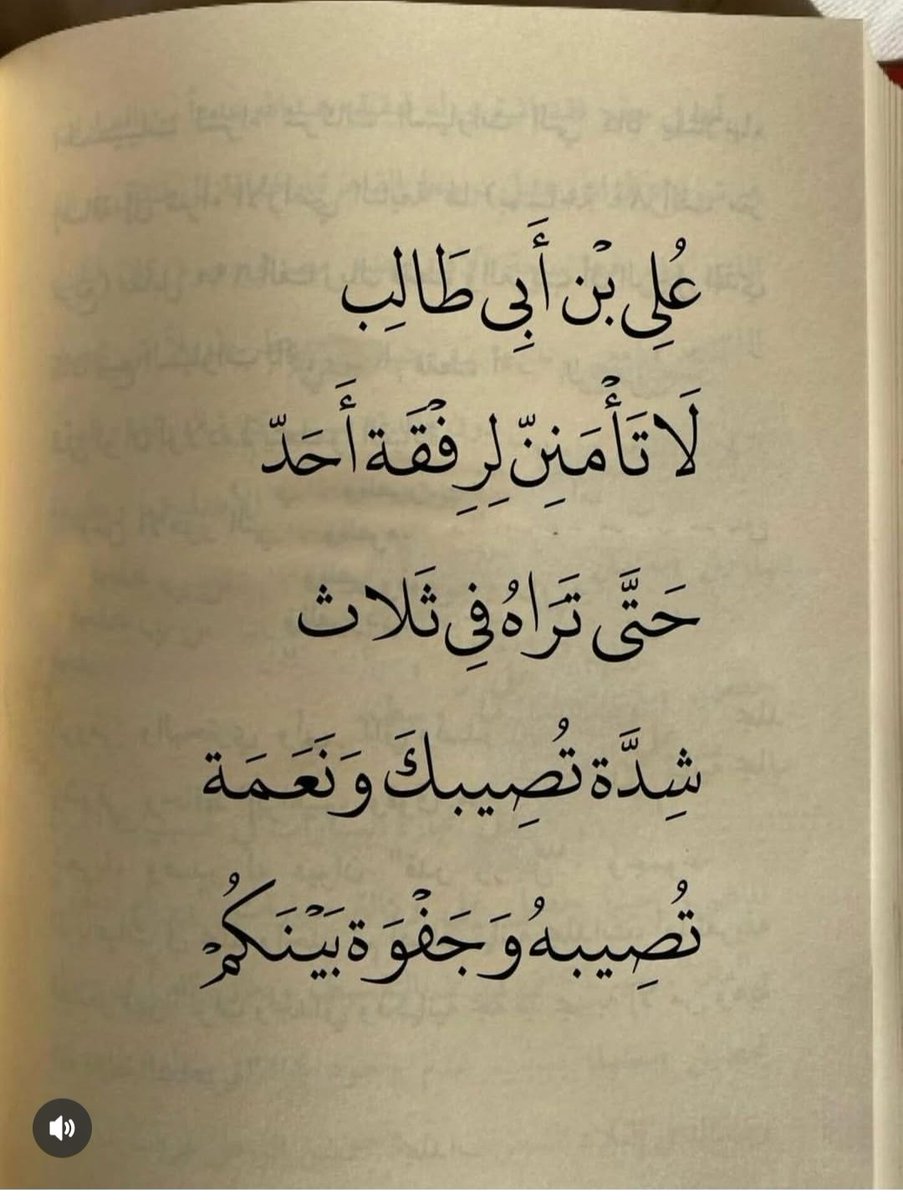 عُلِى بْن أَبِى طَالِب
لَا تَأْمَنِنّ لِرِفْقَة أَحَدّ
حَتَّى تَرَاهُ فِى ثَلاث
شِدَّة تُصِيبكَ وَنَعَمَة
تُصِيبهُ وَجَفْوَة بَيْنَكُمْ